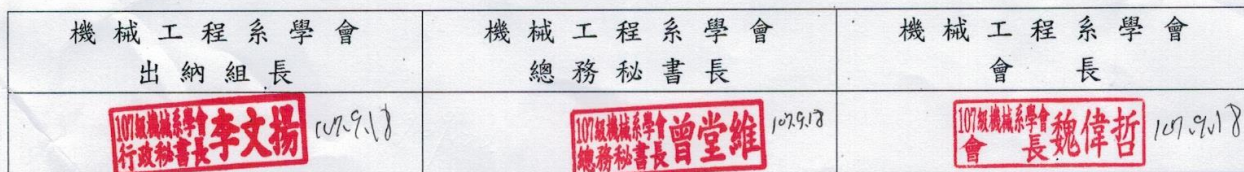 機械工程系學會
出納組長
機械工程系學會
總務秘書長
機械工程系學會
會長
107級機械系學會
行政秘書長
李文揚
107.9.18
107級機械系學會
總務秘書長
曾堂維
107.9.18
107級機械系學會
會長
魏偉哲
107.9.18